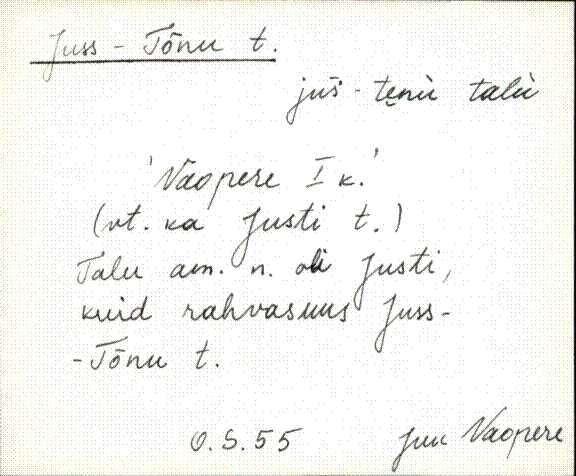 Juss - Tõnu t.
juš - tenu talu
'Vaopere I k.'
(vt. ka Justi t.)
Talu am. n. oli Justi,
kuid rahvasuus Juss-
-Tõnu t.
O.S.55 Juu Vaopere